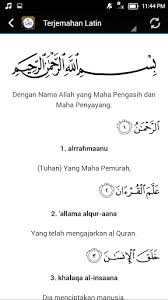 11:44 PM
Terjemahan Latin
بِسْمِ اللَّهِ الرَّحْمَٰنِ الرَّحِيمِ
Dengan Nama Allah yang Maha Pengasih dan
Maha Penyayang.
الرَّحْمَٰنُ ﴿١﴾
1. alrrahmaanu
(Tuhan) Yang Maha Pemurah,
عَلَّمَ الْقُرْءَانَ ﴿٢﴾
2. 'allama alqur-aana
Yang telah mengajarkan al Quran.
خَلَقَ الْإِنسَٰنَ ﴿٣﴾
3. khalaqa al-insaana
Dia menciptakan manusia.